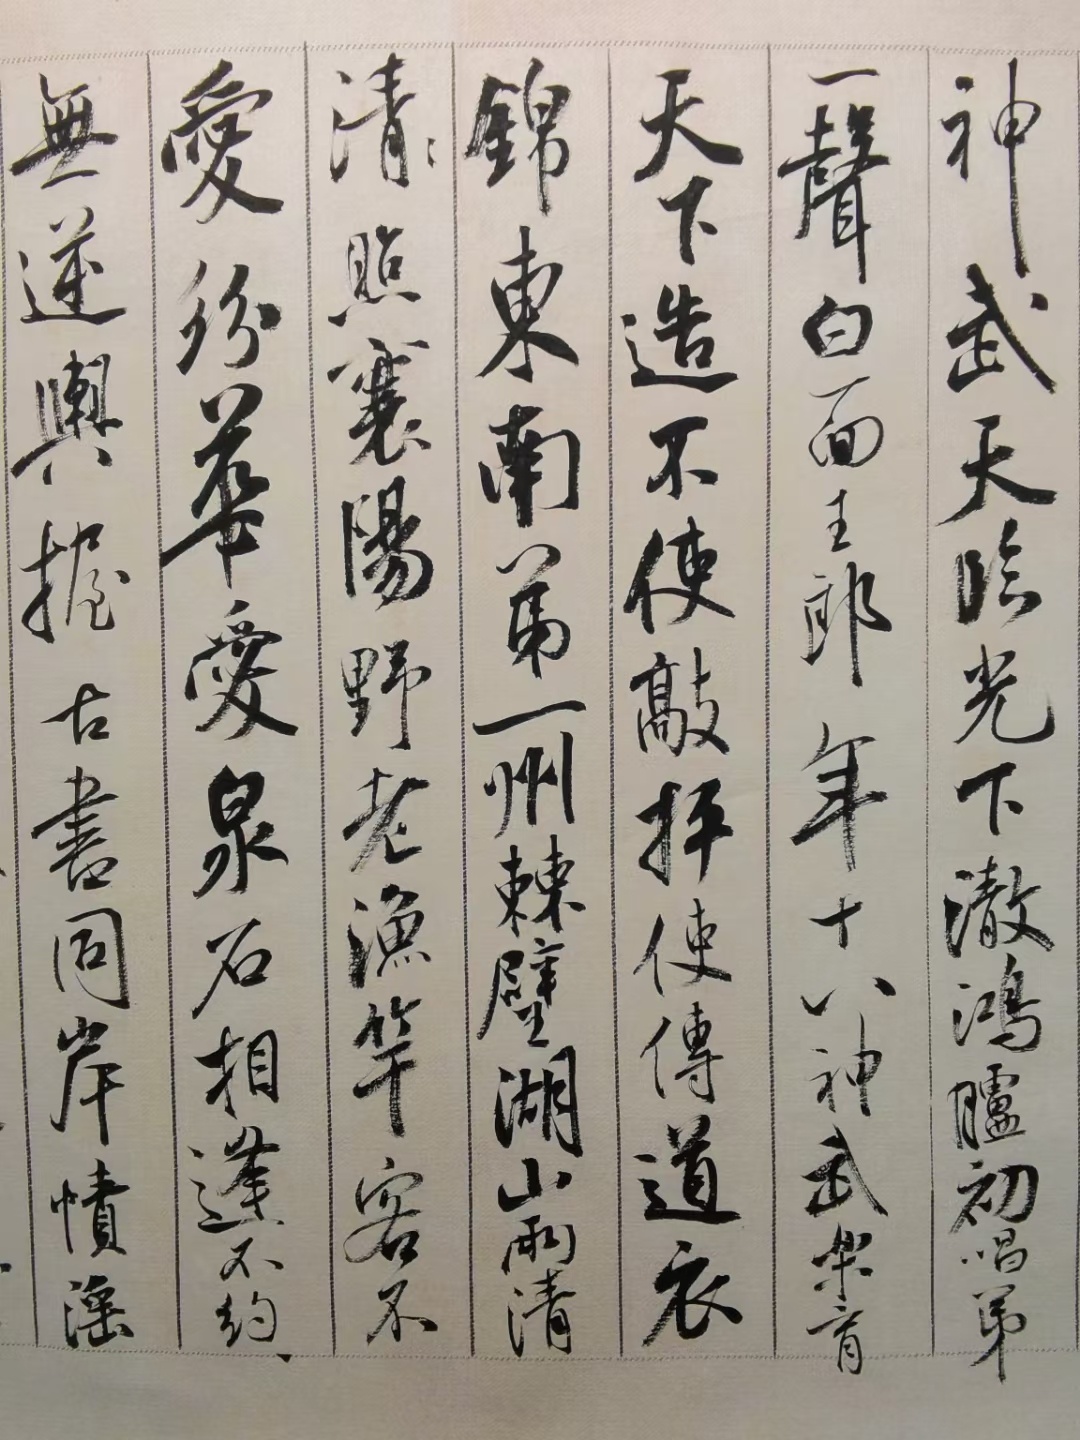 神武天臨光下澈鴻臚初唱第
一聲白面王郎年十八神武樂育
天下造不使敲抨使傳道衣
錦東南第一州棘璧湖山兩清
清照襄陽野老漁竿客不
愛紛華愛泉石相逢不約
無逆輿握古書同岸幘